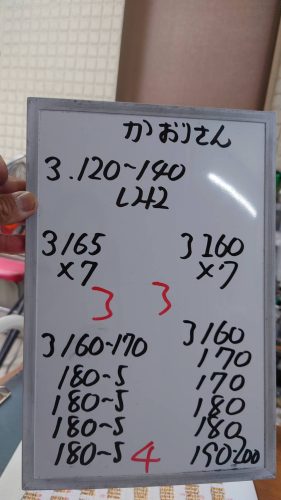 かおりさん
3.120~140
LH2
3165
×7
3
3160
×7
3
3160~170
180~5
180~5
180~5
180~5 4
3160
170
170
180
180
190~200